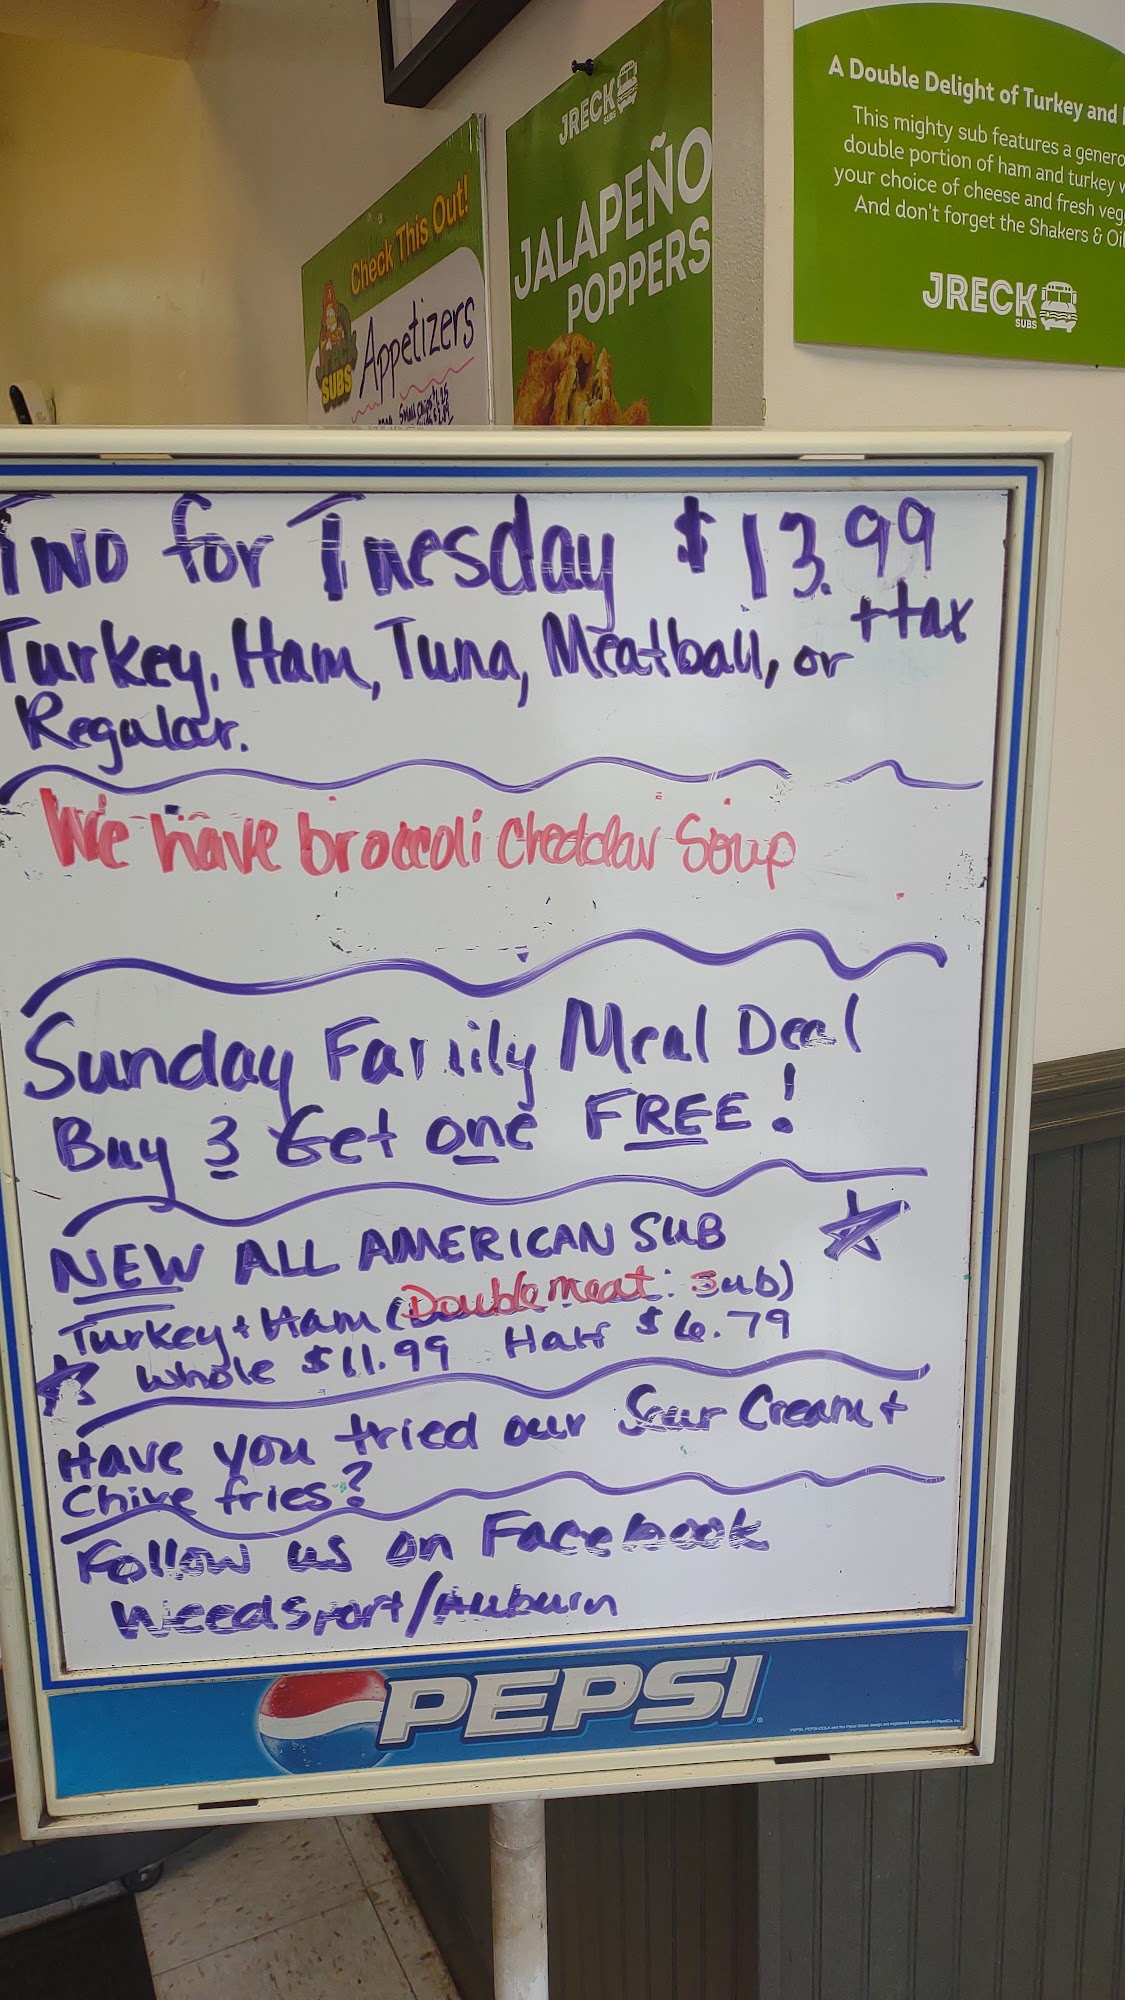 JRECK
SUBS
JALAPEÑO
POPPERS
Check This Out!
SUBS
Appetizers
A Double Delight of Turkey and
This mighty sub features a
double portion of ham and turkey
your choice of cheese and fresh
And don't forget the Shakers &
JRECK
SUBS
Two for Tuesday $13.99
+tax
Turkey, Ham, Tuna, Meatball, or
Regular.
We have broccoli Cheddar Soup
Sunday Family Meal Deal
Buy 3 Get one FREE!
NEW ALL AMERICAN SUB
Turkey + Ham (Double meat: sub)
Whole $11.99 Half $6.79
Have you tried our Sour Cream +
Chive fries?
Follow us on Facebook
Weedsport/Auburn
PEPSI